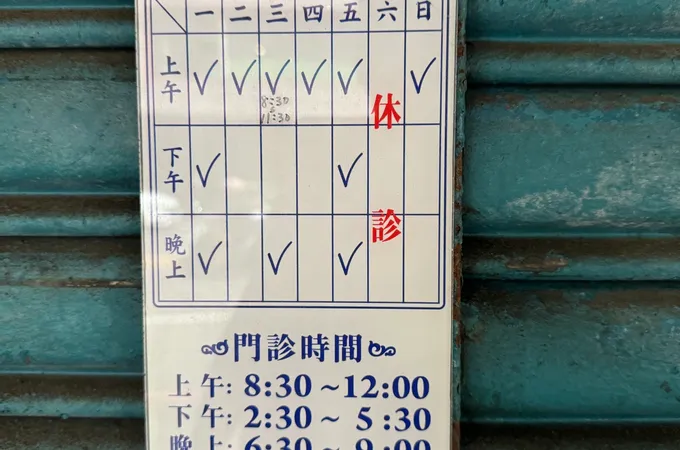 一 二 三 四 五 六 日
上午 ✓ ✓ ✓ ✓ ✓ ✓
8:30
11:30
休
下午 ✓ ✓
診
晚上 ✓ ✓ ✓
門診時間
上午: 8:30~12:00
下午: 2:30~5:30
晚上: 6:30~9:00